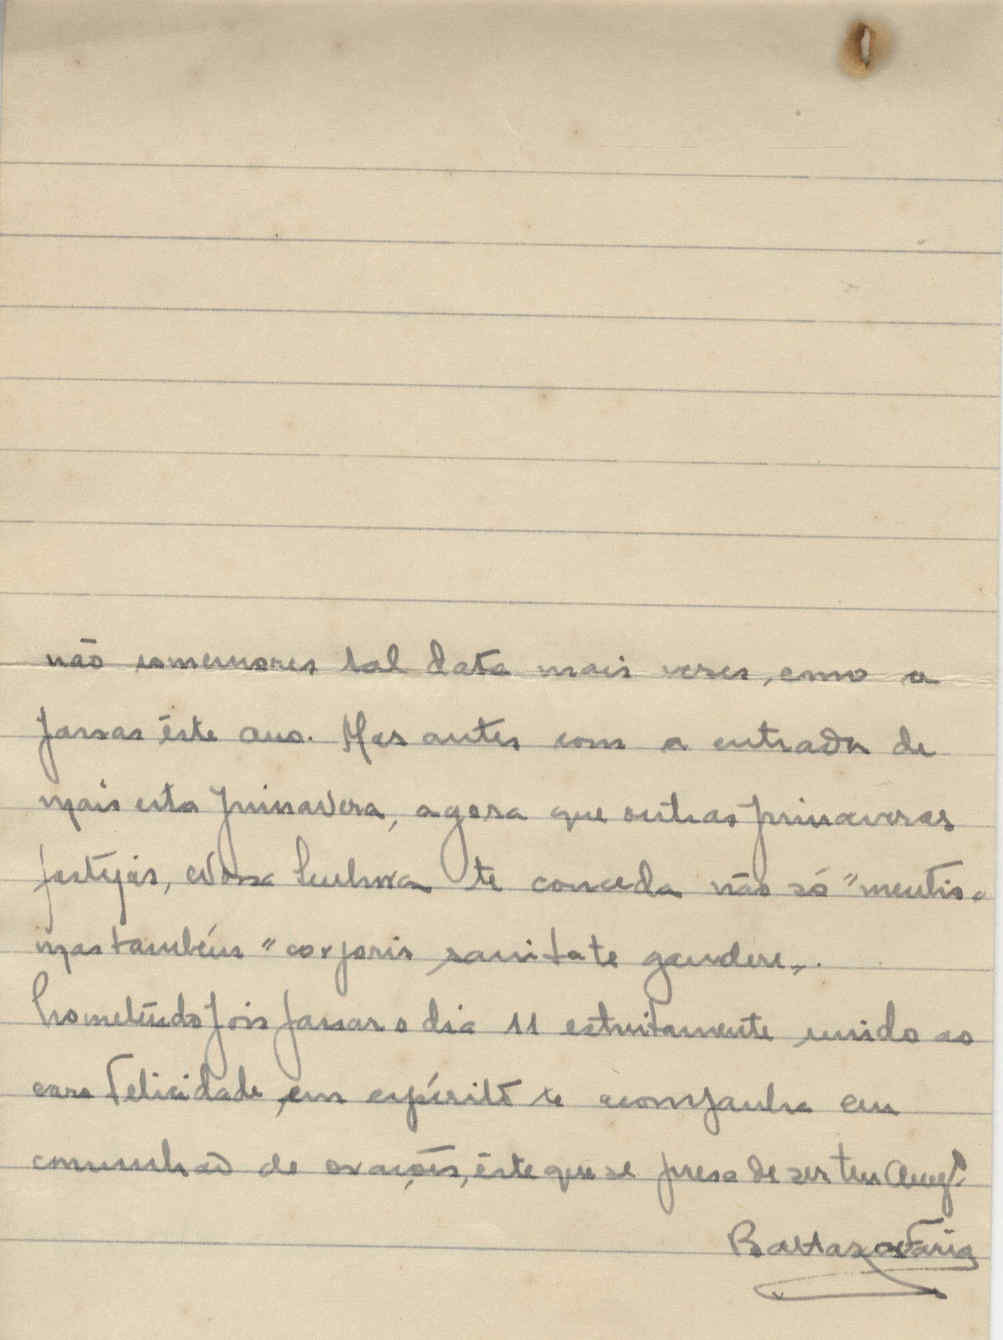 não comemores tal data mais vezes, como a
passas êste ano. Mas antes com a entrada de
mais esta primavera, agora que outras primaveras
festejas, Nossa Senhora te conceda não só "mentis"
mas também "corporis sanitate gaudere".
Prometendo pois passar o dia 11 estreitamente unido ao
caro Felicidade, em espírito te acompanha em
comunhão de orações, êste que se presa de ser teu Amg.º
Baltazar Faria